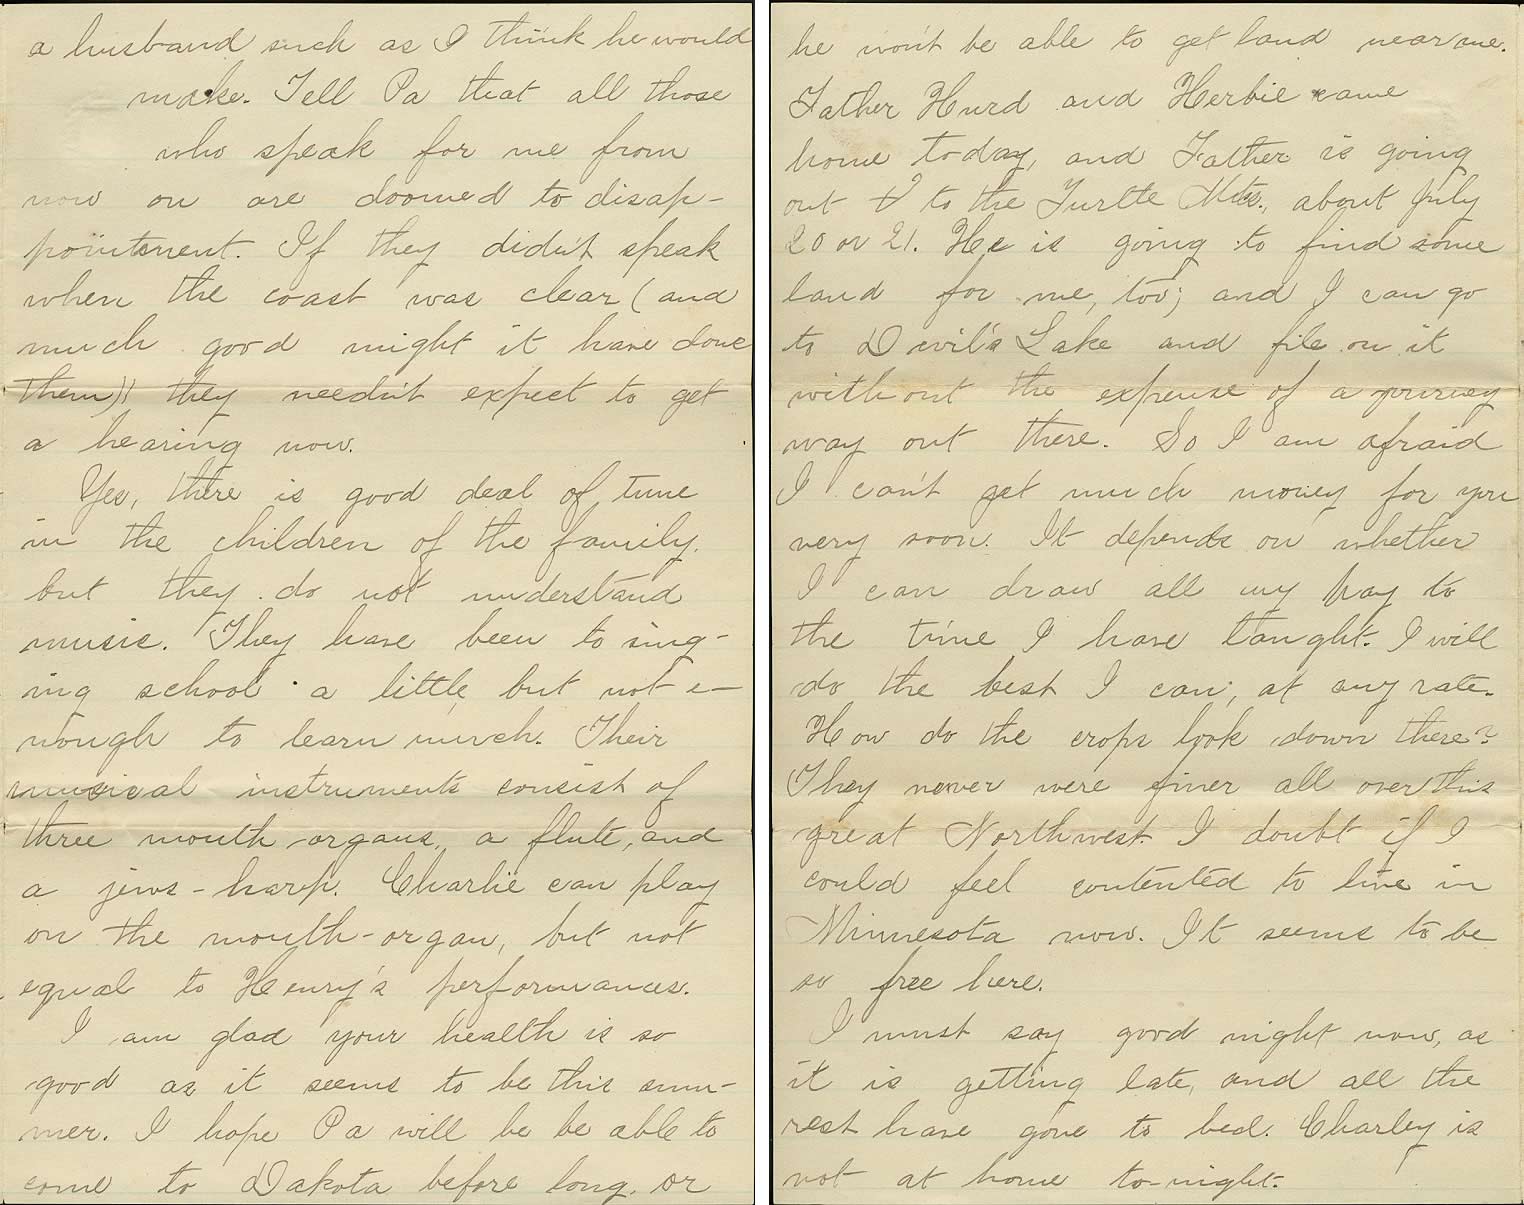 a husband such as I think he would
make. Tell Pa that all those
who speak for me from
now on are doomed to disap-
pointment. If they didn't speak
when the coast was clear (and
much good might it have done
them)! they needn't expect to get
a hearing now.
Yes, there is good deal of tune
in the children of the family,
but they do not understand
music. They have been to sing-
ing school a little, but not e-
nough to learn much. Their
musical instruments consist of
three mouth organs, a flute, and
a jews-harp. Charlie can play
on the mouth-organ, but not
equal to Henry's performances.
I am glad your health is so
good as it seems to be this sum-
mer. I hope Pa will be be able to
come to Dakota before long, or
he won't be able to get land near me.
Father Hurd and Herbie came
home today, and Father is going
out to the Turtle Mts., about July
20 or 21. He is going to find some
land for me, too; and I can go
to Devil's Lake and file on it
without the expense of a journey
way out there. So I am afraid
I can't get much money for you
very soon. It depends on whether
I can draw all my pay to
the time I have taught. I will
do the best I can, at any rate.
How do the crops look down there?
They never were finer all over this
great Northwest. I doubt if I
could feel contented to live in
Minnesota now. It seems to be
so free here.
I must say good night now, as
it is getting late, and all the
rest have gone to bed. Charley is
not at home to-night.